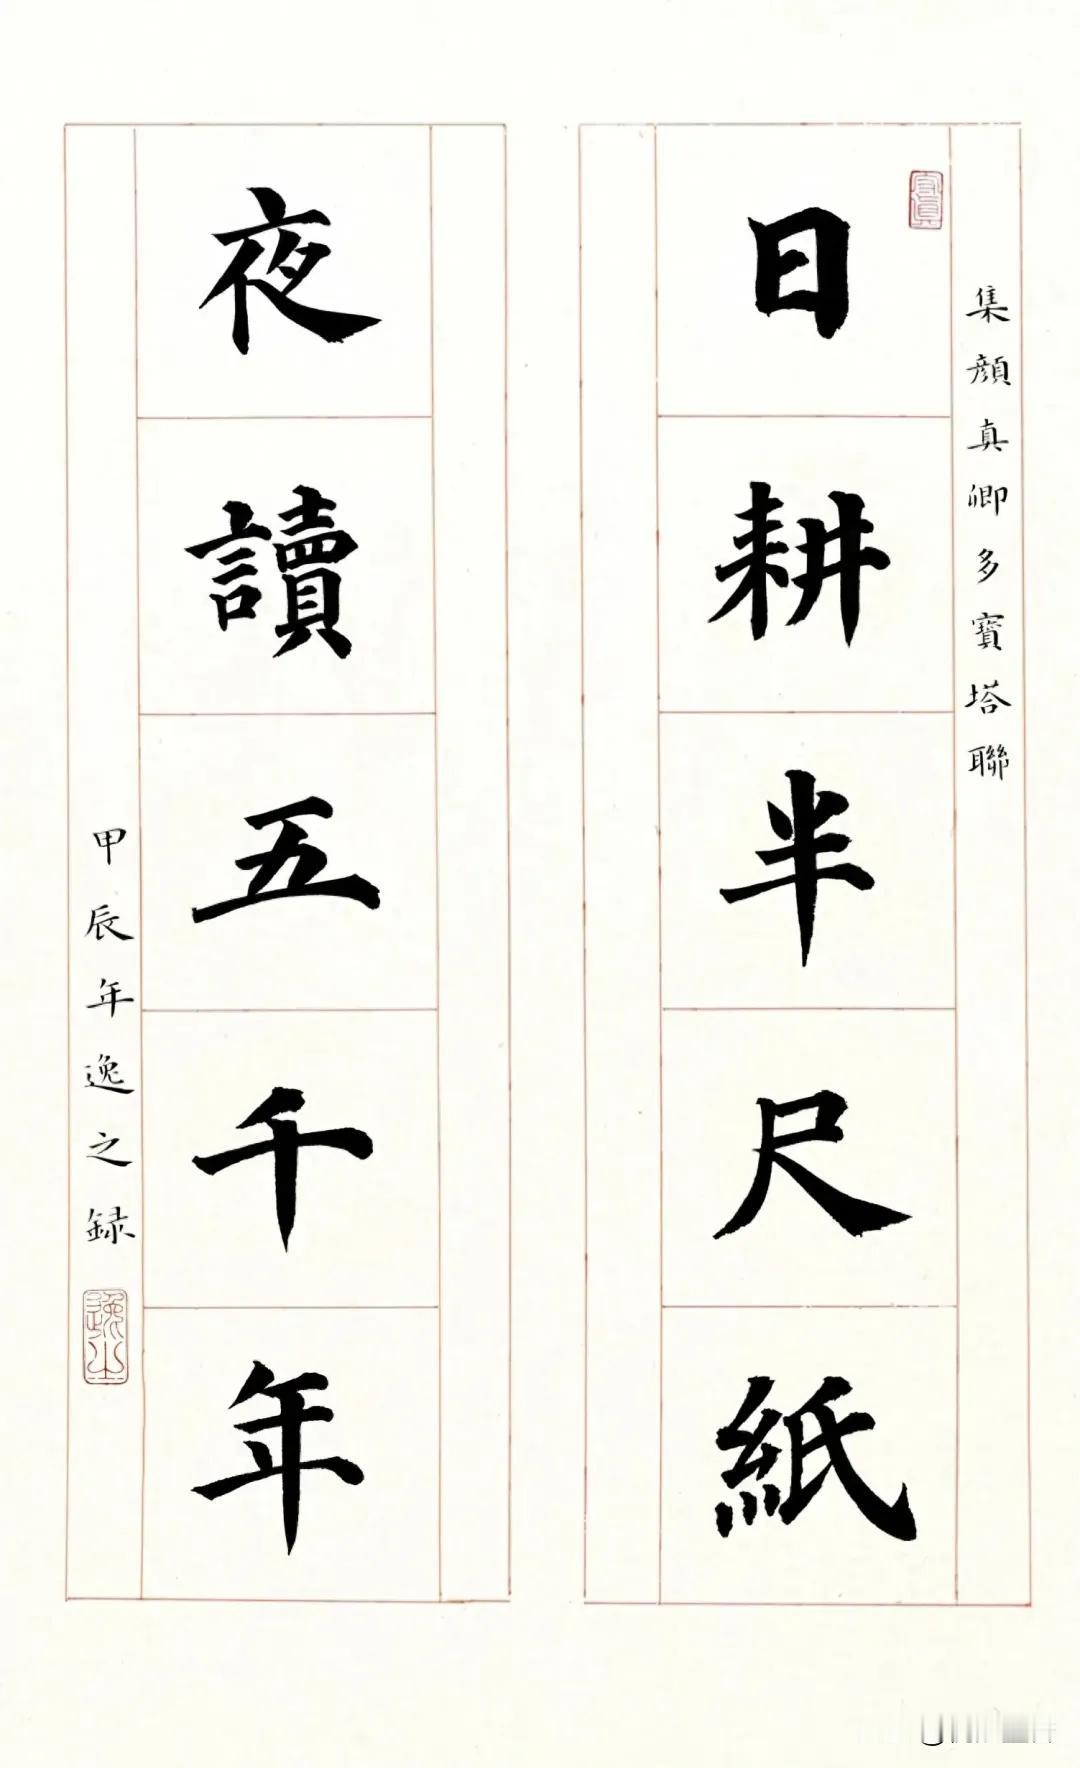 集顏真卿多寶塔聯
日耕半尺紙
夜讀五千年
甲辰年逸之録
逸之